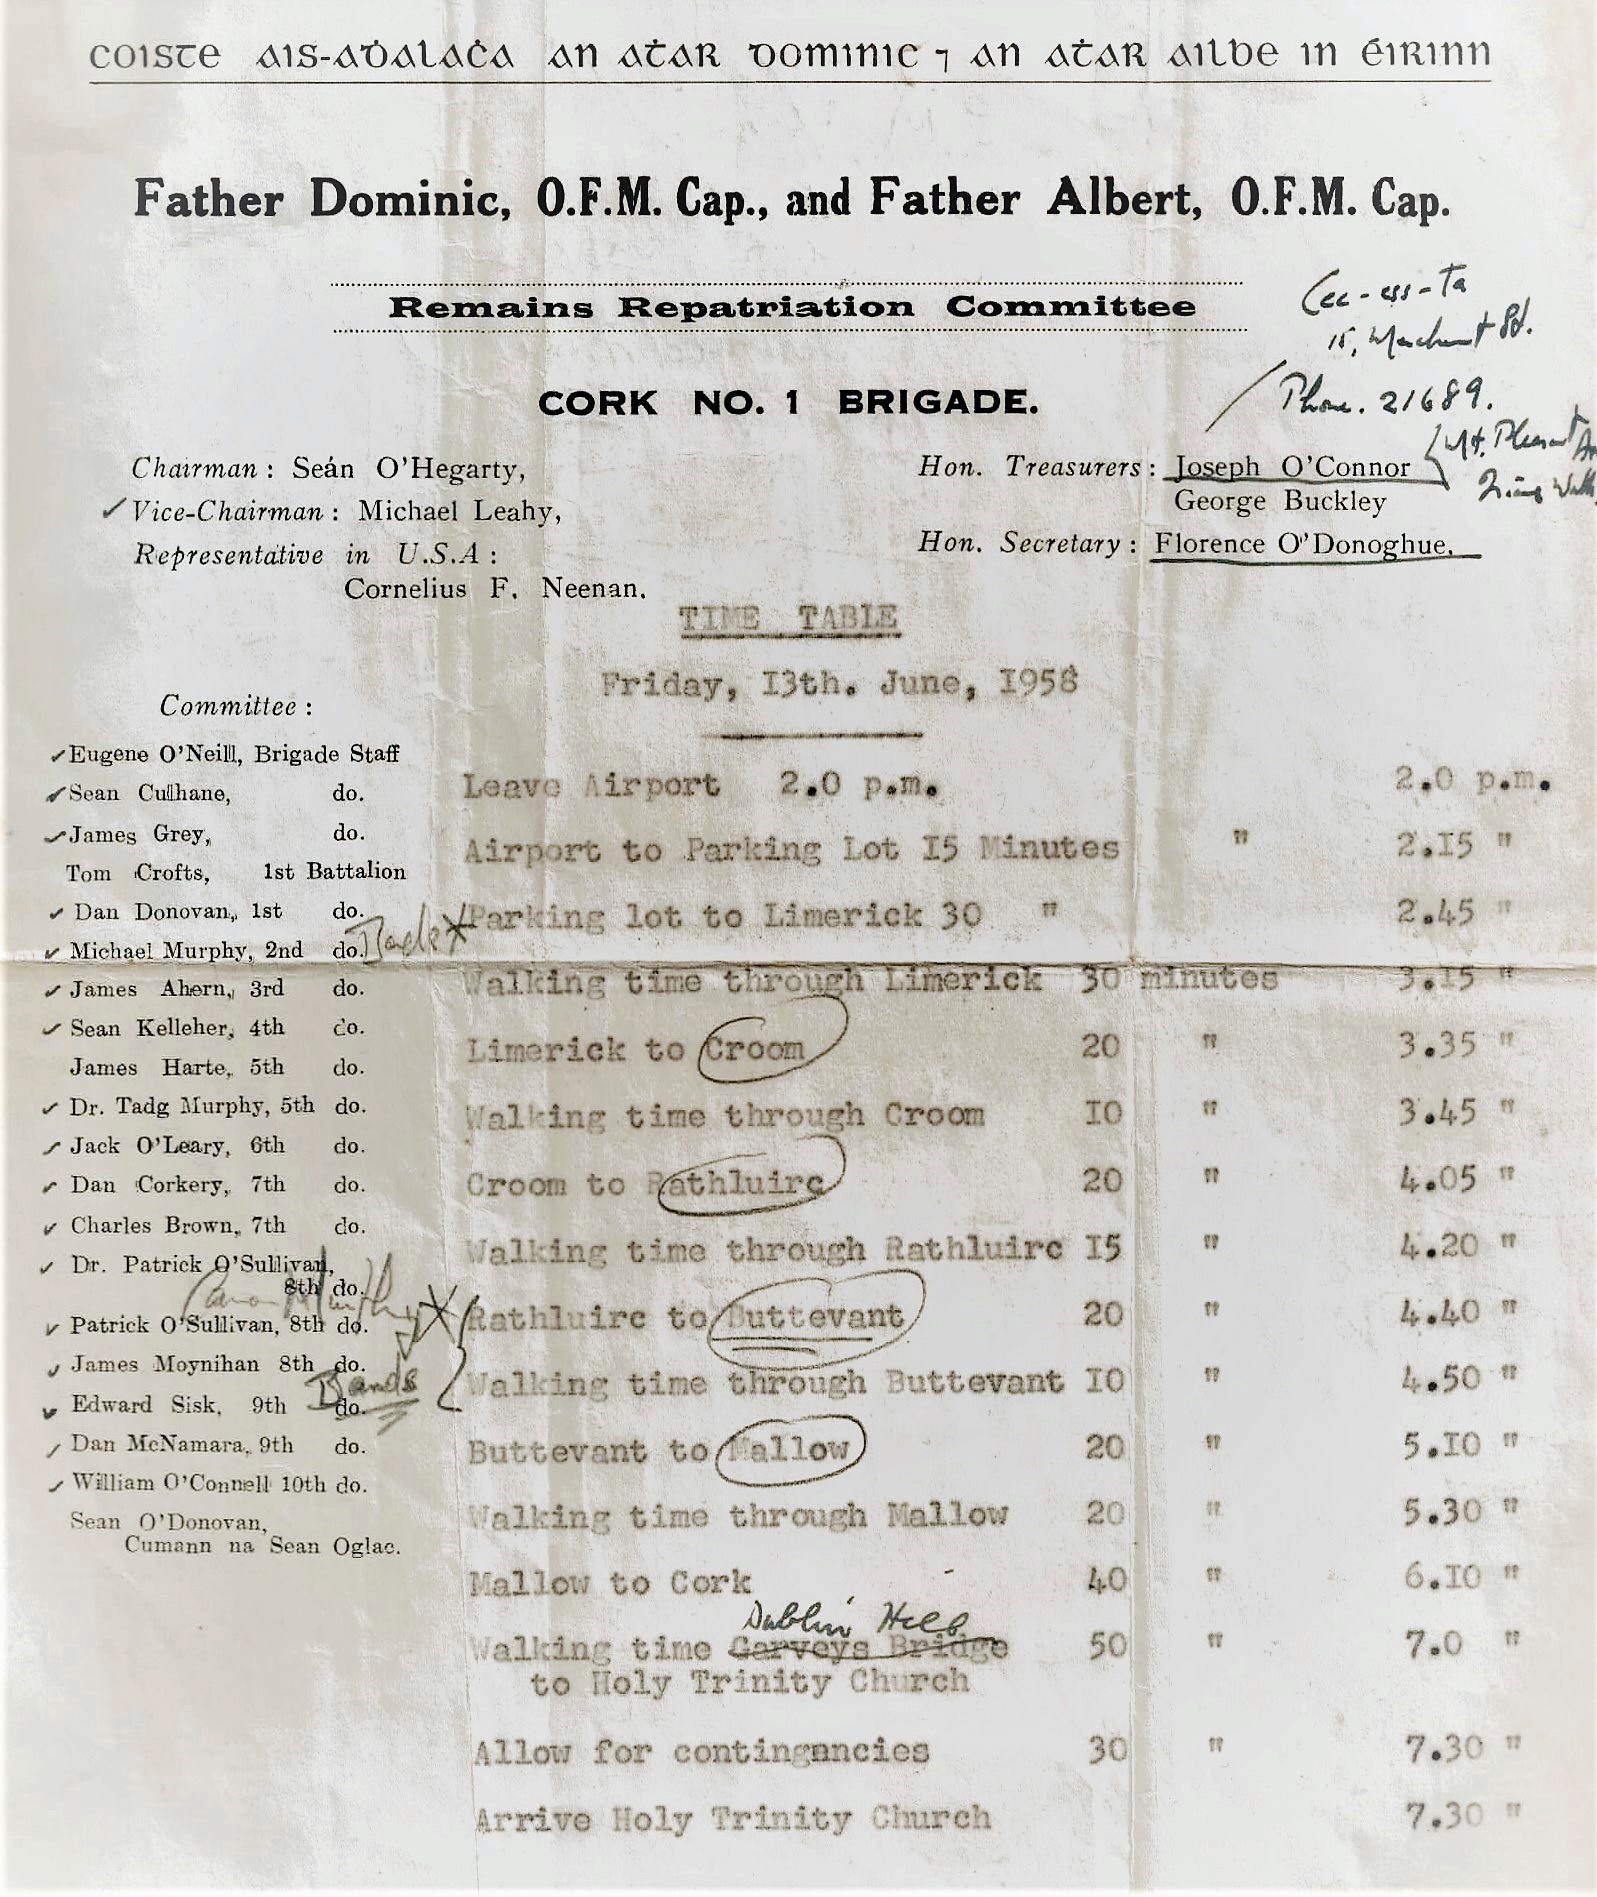 coiste ais-aḋalaċa an aṫar dominic ⁊ an aṫar ailbe in éirinn
Father Dominic, O.F.M. Cap., and Father Albert, O.F.M. Cap.
Remains Repatriation Committee
Cee-ess-Ta
15, Merchant St.
CORK NO. 1 BRIGADE.
Phone. 21689.
Chairman : Seán O'Hegarty,
✓ Vice-Chairman : Michael Leahy,
Representative in U.S.A :
Cornelius F. Neenan.
Hon. Treasurers : Joseph O'Connor
Mt. Pleasant
George Buckley
Hon. Secretary : Florence O'Donoghue.
TIME TABLE
Friday, I3th. June, I958
Committee :
✓ Eugene O'Neill, Brigade Staff
✓ Sean Culhane, do.
✓ James Grey, do.
Tom Crofts, 1st Battalion
✓ Dan Donovan, 1st do.
✓ Michael Murphy, 2nd do.
✓ James Ahern, 3rd do.
✓ Sean Kelleher, 4th do.
James Harte, 5th do.
✓ Dr. Tadg Murphy, 5th do.
✓ Jack O'Leary, 6th do.
✓ Dan Corkery, 7th do.
✓ Charles Brown, 7th do.
✓ Dr. Patrick O'Sullivan,
8th do.
✓ Patrick O'Sullivan, 8th do.
✓ James Moynihan 8th do.
Bands
✓ Edward Sisk, 9th do.
✓ Dan McNamara, 9th do.
✓ William O'Connell 10th do.
Sean O'Donovan,
Cumann na Sean Oglac.
Leave Airport 2.0 p.m. 2.0 p.m.
Airport to Parking Lot I5 Minutes " 2.I5 "
Parking lot to Limerick 30 " 2.45 "
Walking time through Limerick 30 minutes 3.I5 "
Limerick to Croom 20 " 3.35 "
Walking time through Croom IO " 3.45 "
Croom to Rathluirc 20 " 4.05 "
Walking time through Rathluirc I5 " 4.20 "
Rathluirc to Buttevant 20 " 4.40 "
Walking time through Buttevant IO " 4.50 "
Buttevant to Mallow 20 " 5.IO "
Walking time through Mallow 20 " 5.30 "
Mallow to Cork 40 " 6.IO "
Dublin Hill
Walking time Garveys Bridge 50 " 7.0 "
to Holy Trinity Church
Allow for contingancies 30 " 7.30 "
Arrive Holy Trinity Church 7.30 "